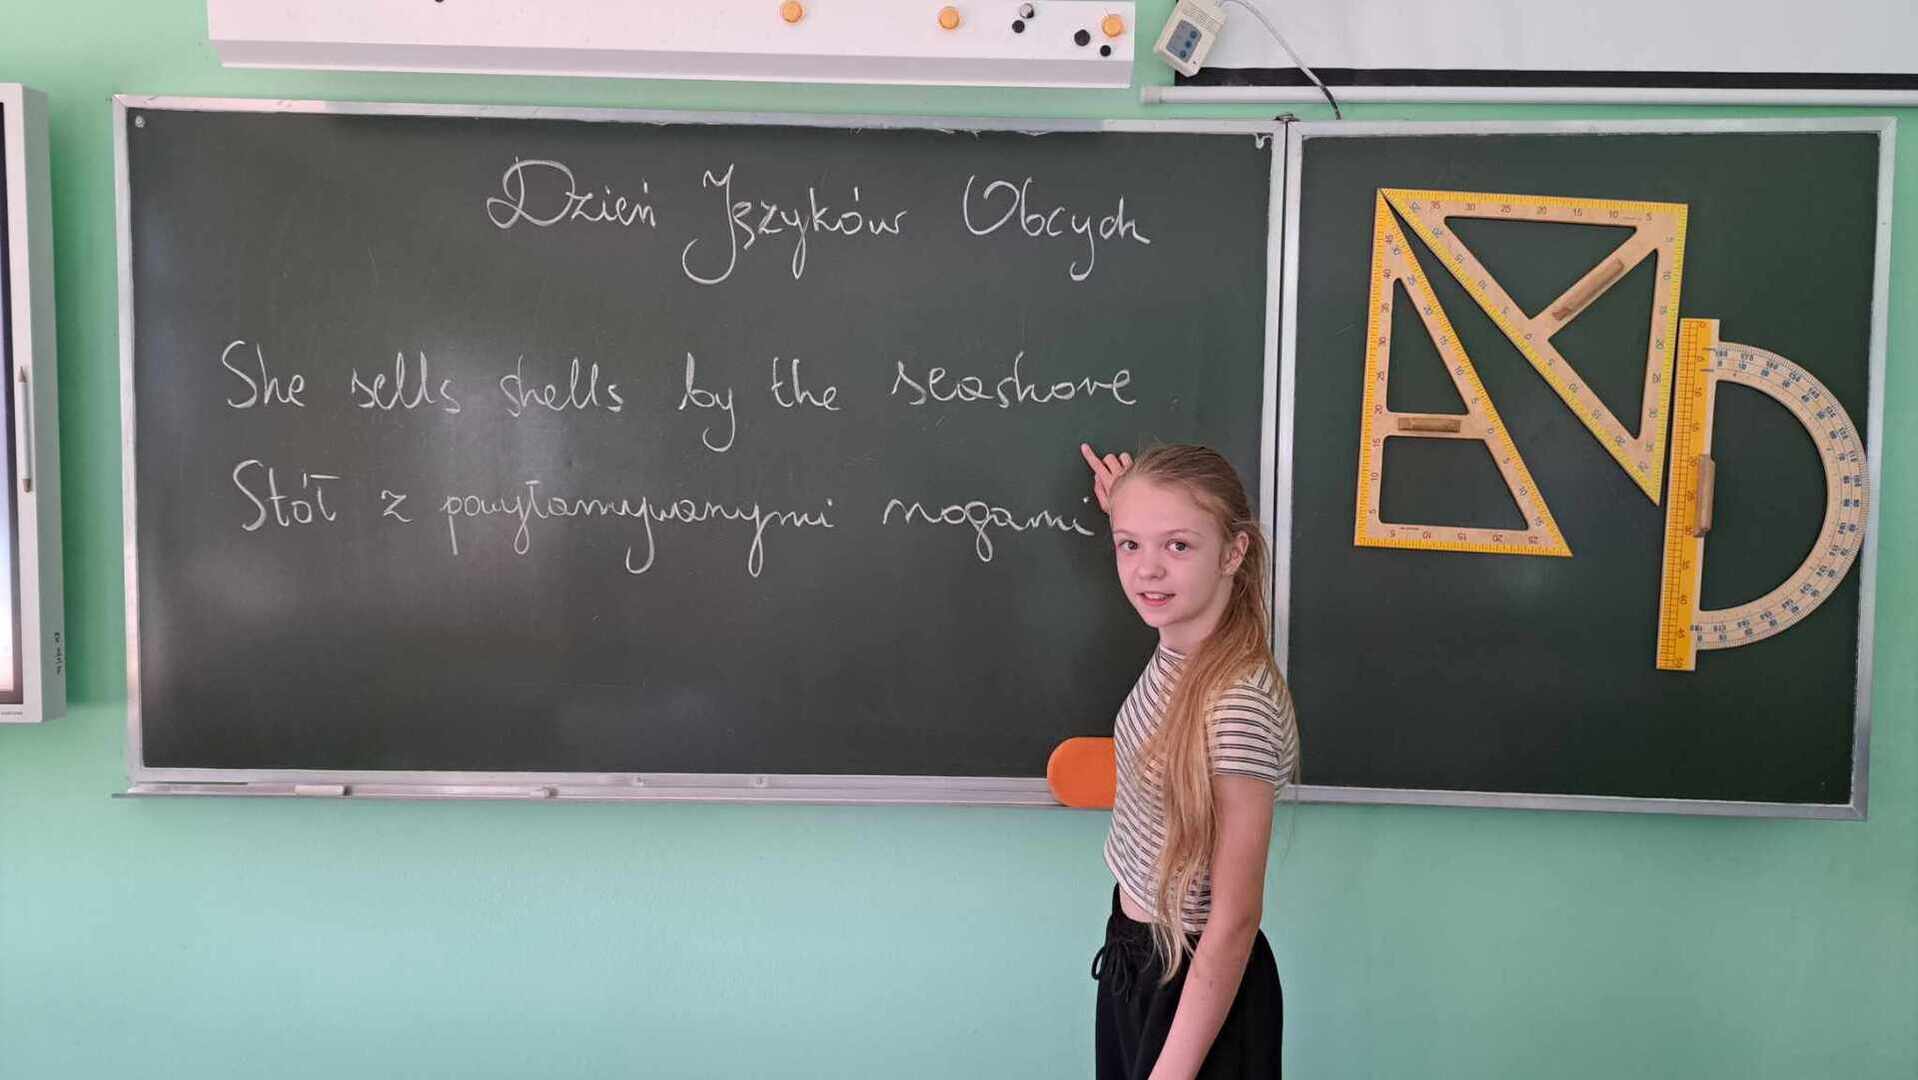 Dzień Języków Obcych
She sells shells by the seashore
Stół z powyłamywanymi nogami